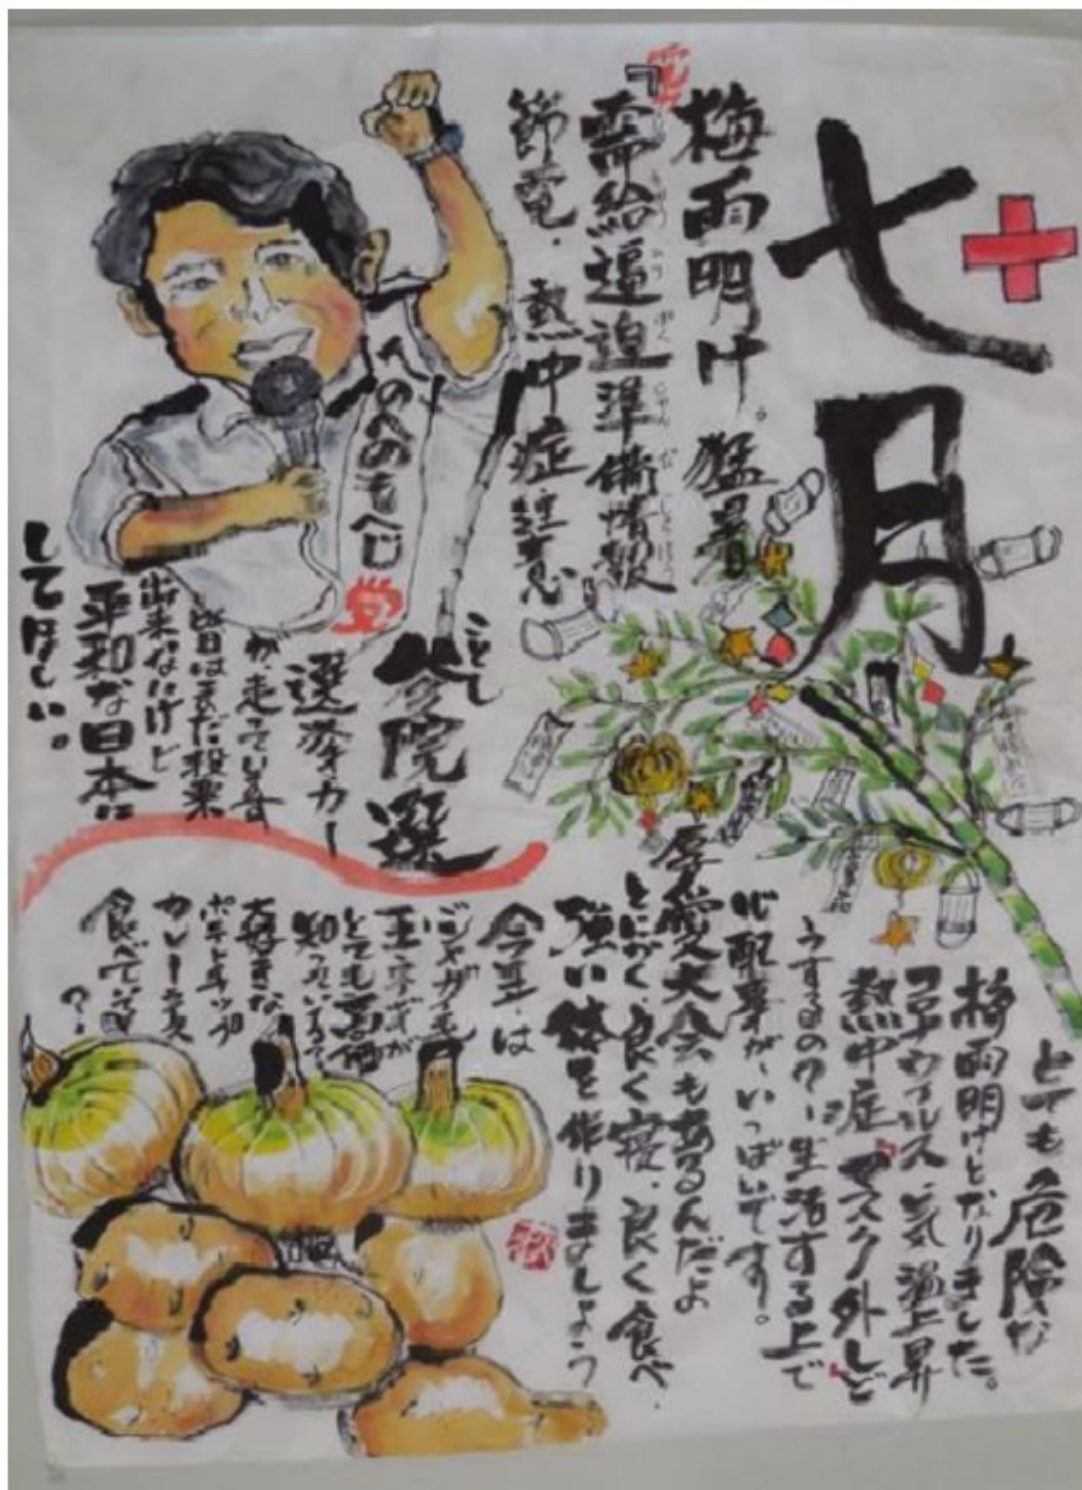 七月
梅雨明け。猛暑
『需給逼迫準備情報
じゅきゅうひっぱくじゅんびじょうほう
節電・熱中症注意
へのへのもへじ
党
ことし
参院選
選挙カー
が、走っています
皆はまだ投票
出来ないけど
平和な日本に
してほしい。
とても危険な
梅雨明けとなりました。
コロナウイルス、気温上昇
熱中症「マスク外し」ど
うするの?、生活する上で
心配事が、いっぱいです。
厚愛大会もあるんだよ
とにかく、良く寝、良く食べ、
強い体を作りましょう
今年は
ジャガイモ
玉ネギが
とても高価
知っているて
大好きな
ポテトチップ
カレーライス
食べている
?!